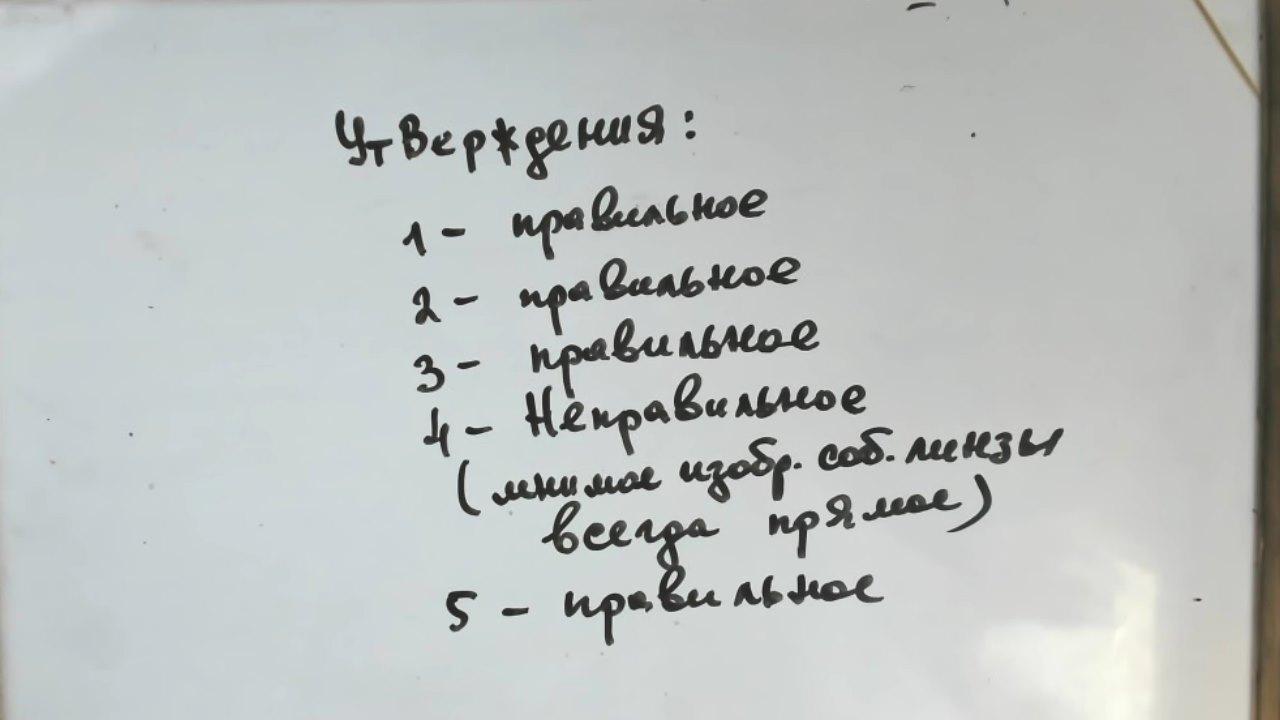 Утверждения:
1 - правильное
2 - правильное
3 - правильное
4 - Неправильное
(мнимое изобр. соб. линзы
всегда прямое)
5 - правильное